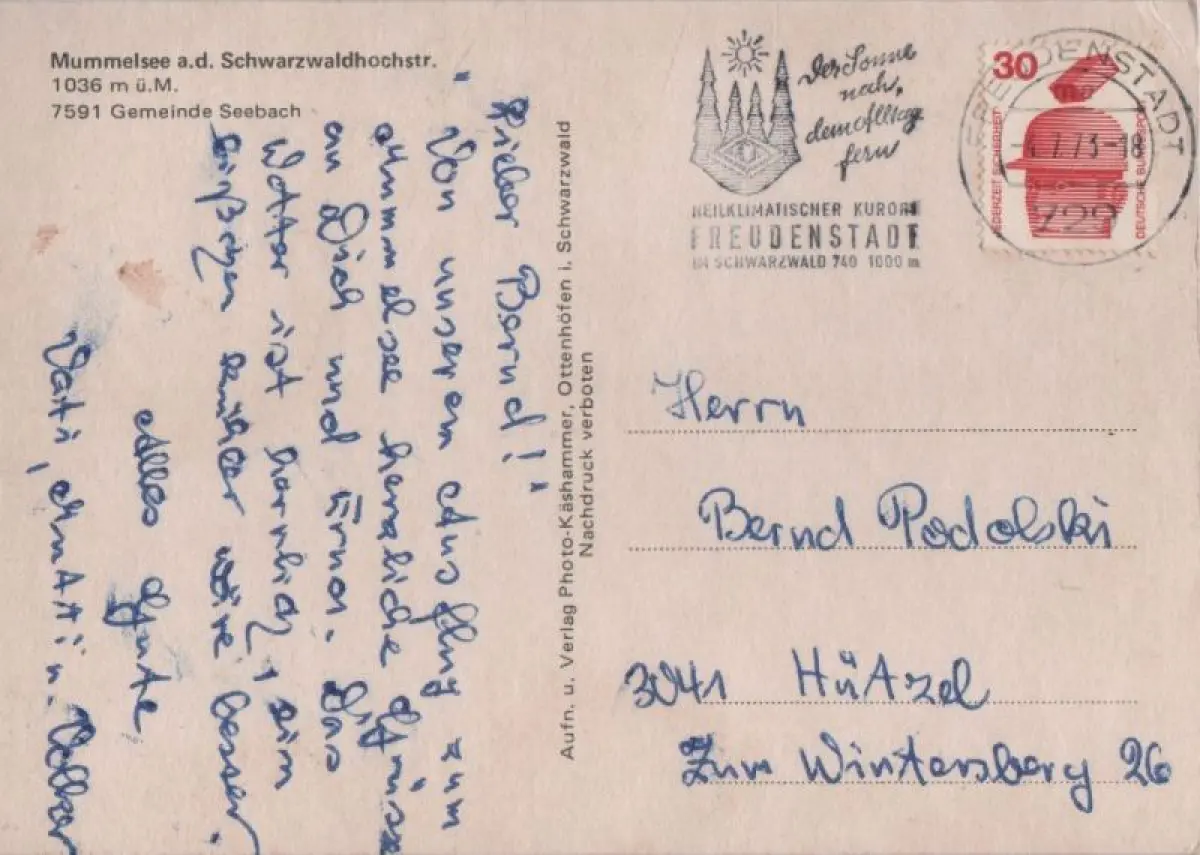 Mummelsee a.d. Schwarzwaldhochstr.
1036 m ü.M.
7591 Gemeinde Seebach
"Lieber Bernd!"
Von unserem Ausflug zum
Mummelsee herzliche Grüsse
an Dich und Erna. Das
Wetter ist herrlich, ein
bißchen kühler wäre besser.
Alles Gute
Vati, Mutti u. Volker
Aufn. u. Verlag Photo-Käshammer, Ottenhöfen i. Schwarzwald
Nachdruck verboten
Der Sonne
nah,
dem Alltag
fern
HEILKLIMATISCHER KURORT
FREUDENSTADT
IM SCHWARZWALD 740 1000 m
FREUDENSTADT
7.73-18
729
30
JEDERZEIT SICHERHEIT
DEUTSCHE BUNDESPOST
Herrn
Bernd Podolski
3041 Hützel
Zum Wintersberg 26